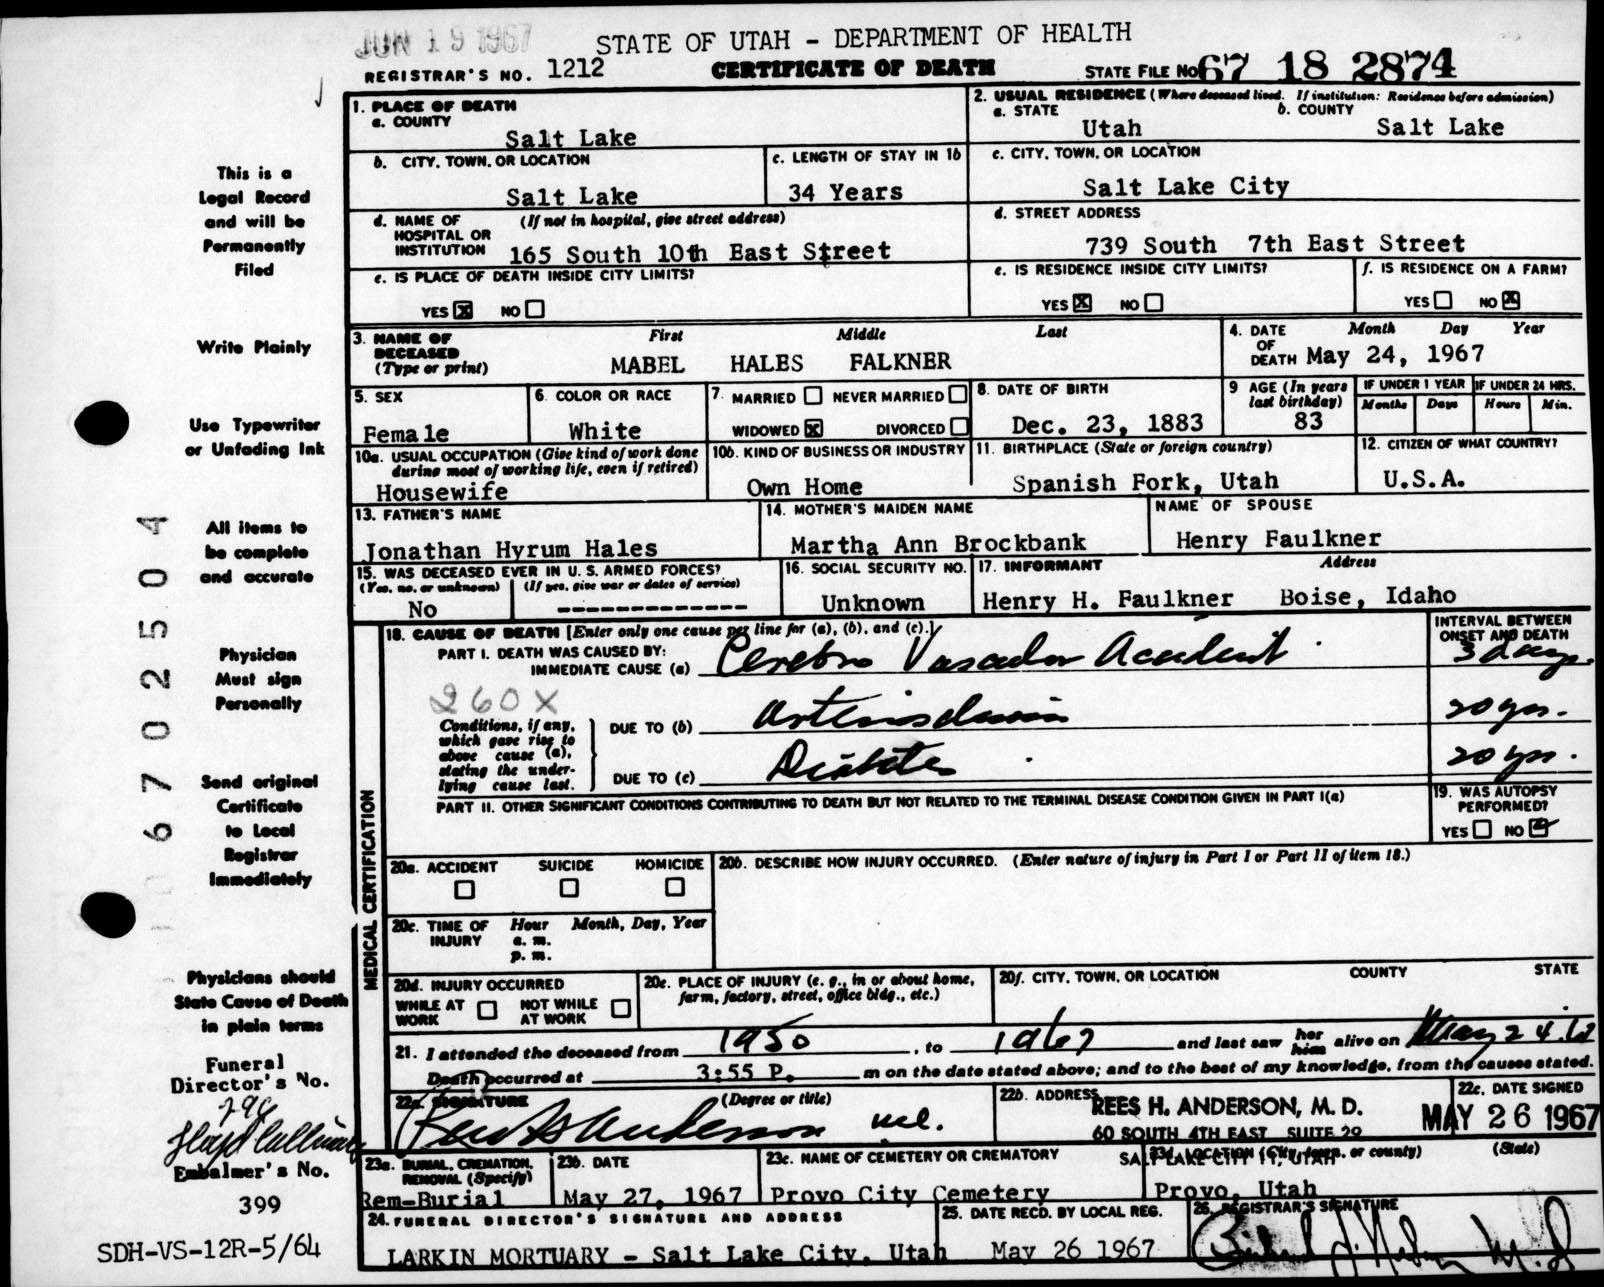 JUN 19 1967
STATE OF UTAH - DEPARTMENT OF HEALTH
REGISTRAR'S NO. 1212 CERTIFICATE OF DEATH STATE FILE NO. 67 18 2874
1. PLACE OF DEATH
a. COUNTY
Salt Lake
2. USUAL RESIDENCE (Where deceased lived. If institution: Residence before admission)
a. STATE b. COUNTY
Utah Salt Lake
b. CITY, TOWN, OR LOCATION
Salt Lake
c. LENGTH OF STAY IN 1b
34 Years
c. CITY, TOWN, OR LOCATION
Salt Lake City
d. NAME OF HOSPITAL OR INSTITUTION (If not in hospital, give street address)
165 South 10th East Street
d. STREET ADDRESS
739 South 7th East Street
e. IS PLACE OF DEATH INSIDE CITY LIMITS?
YES X NO
e. IS RESIDENCE INSIDE CITY LIMITS?
YES X NO
f. IS RESIDENCE ON A FARM?
YES NO X
3. NAME OF DECEASED (Type or print)
First Middle Last
MABEL HALES FALKNER
4. DATE OF DEATH Month Day Year
May 24, 1967
5. SEX
Female
6. COLOR OR RACE
White
7. MARRIED NEVER MARRIED
WIDOWED X DIVORCED
8. DATE OF BIRTH
Dec. 23, 1883
9 AGE (In years last birthday)
83
IF UNDER 1 YEAR IF UNDER 24 HRS.
Months Days Hours Min.
10a. USUAL OCCUPATION (Give kind of work done during most of working life, even if retired)
Housewife
10b. KIND OF BUSINESS OR INDUSTRY
Own Home
11. BIRTHPLACE (State or foreign country)
Spanish Fork, Utah
12. CITIZEN OF WHAT COUNTRY?
U.S.A.
13. FATHER'S NAME
Jonathan Hyrum Hales
14. MOTHER'S MAIDEN NAME
Martha Ann Brockbank
NAME OF SPOUSE
Henry Faulkner
15. WAS DECEASED EVER IN U.S. ARMED FORCES?
(Yes, no, or unknown) (If yes, give war or dates of service)
No --------------
16. SOCIAL SECURITY NO.
Unknown
17. INFORMANT Address
Henry H. Faulkner Boise, Idaho
MEDICAL CERTIFICATION
18. CAUSE OF DEATH [Enter only one cause per line for (a), (b), and (c).]
INTERVAL BETWEEN ONSET AND DEATH
PART I. DEATH WAS CAUSED BY:
IMMEDIATE CAUSE (a) Cerebro Vascular Accident 3 days.
260X
Conditions, if any, which gave rise to above cause (a), stating the underlying cause last.
DUE TO (b) Arteriosclerosis 20 yrs.
DUE TO (c) Diabetes 20 yrs.
PART II. OTHER SIGNIFICANT CONDITIONS CONTRIBUTING TO DEATH BUT NOT RELATED TO THE TERMINAL DISEASE CONDITION GIVEN IN PART I(a)
19. WAS AUTOPSY PERFORMED?
YES NO
20a. ACCIDENT SUICIDE HOMICIDE
20b. DESCRIBE HOW INJURY OCCURRED. (Enter nature of injury in Part I or Part II of item 18.)
20c. TIME OF INJURY Hour Month, Day, Year
a. m.
p. m.
20d. INJURY OCCURRED
WHILE AT WORK NOT WHILE AT WORK
20e. PLACE OF INJURY (e. g., in or about home, farm, factory, street, office bldg., etc.)
20f. CITY, TOWN, OR LOCATION COUNTY STATE
21. I attended the deceased from 1950, to 1967 and last saw her him alive on May 24.67
Death occurred at 3:55 P. m on the date stated above; and to the best of my knowledge, from the causes stated.
22a. SIGNATURE (Degree or title)
Rees H Anderson MD.
22b. ADDRESS
REES H. ANDERSON, M. D.
60 SOUTH 4TH EAST SUITE 29
SALT LAKE CITY 11, UTAH
22c. DATE SIGNED
MAY 26 1967
23a. BURIAL, CREMATION, REMOVAL (Specify)
Rem-Burial
23b. DATE
May 27, 1967
23c. NAME OF CEMETERY OR CREMATORY
Provo City Cemetery
23d. LOCATION (City, town, or county) (State)
Provo, Utah
24. FUNERAL DIRECTOR'S SIGNATURE AND ADDRESS
LARKIN MORTUARY - Salt Lake City, Utah
25. DATE RECD. BY LOCAL REG.
May 26 1967
26. REGISTRAR'S SIGNATURE
This is a
Legal Record
and will be
Permanently
Filed
Write Plainly
Use Typewriter
or Unfading Ink
All items to
be complete
and accurate
Physician
Must sign
Personally
Send original
Certificate
to Local
Registrar
Immediately
Physicians should
State Cause of Death
in plain terms
Funeral
Director's No.
Embalmer's No.
399
SDH-VS-12R-5/64
06702504